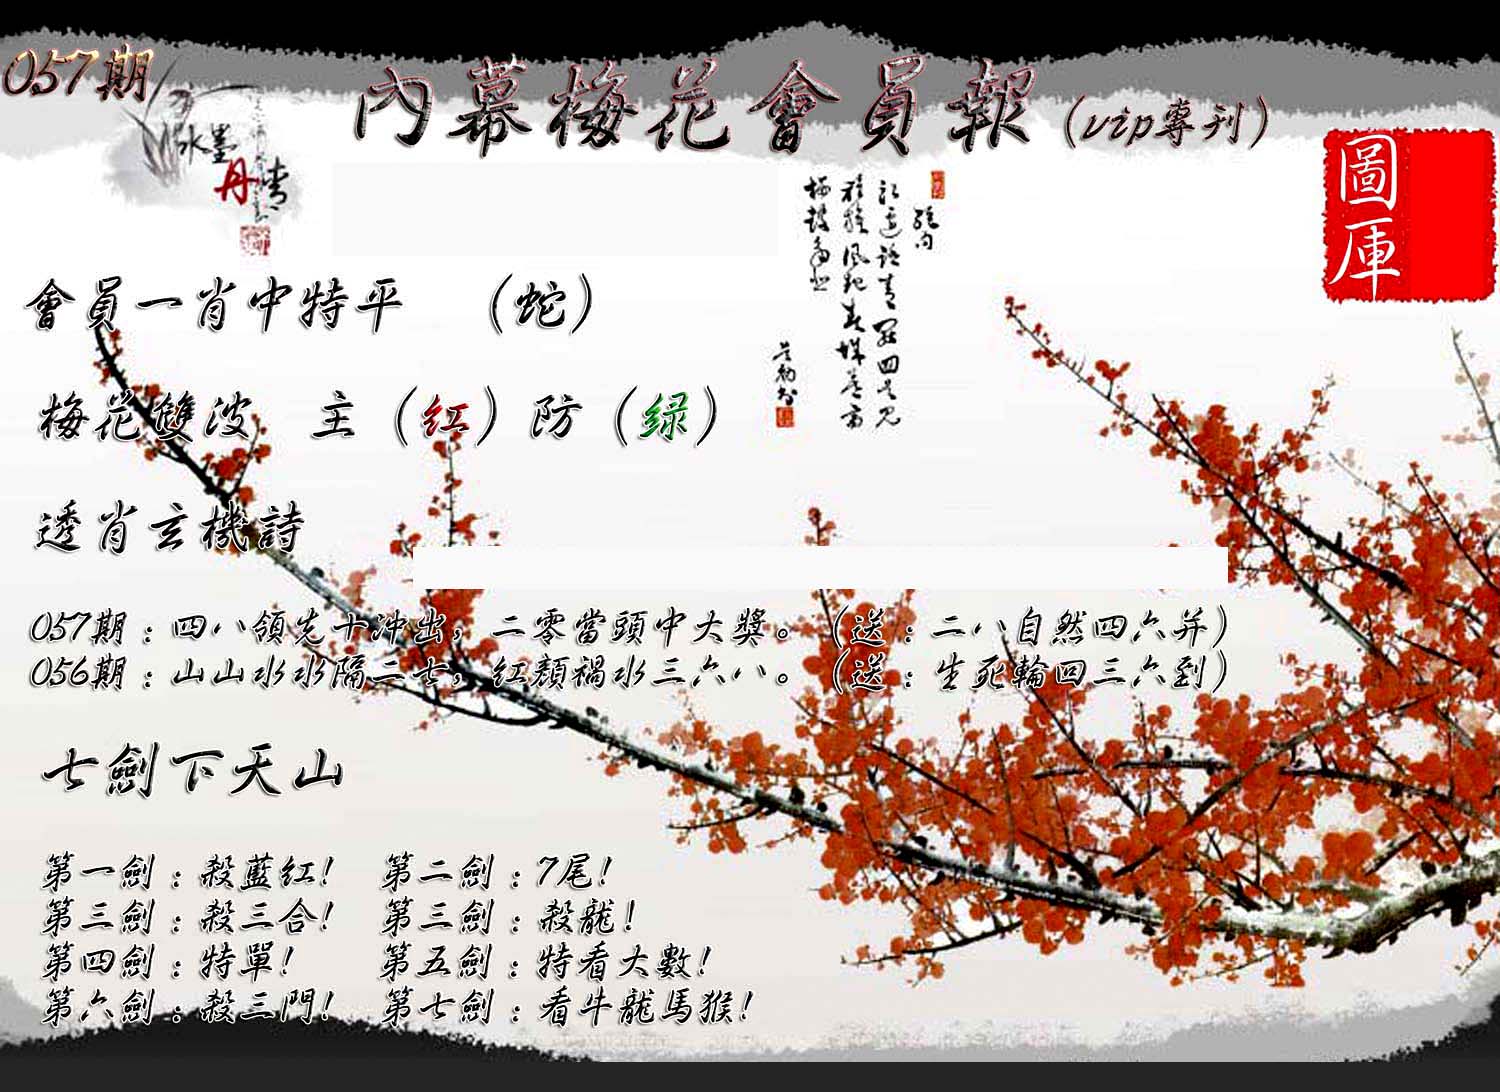 057期
內幕梅花會員報(vip專刊)
水墨
丹青
圖庫
會員一肖中特平 (蛇)
梅花雙波 主(红)防(绿)
透肖玄機詩
057期：四八領先十沖出，二零當頭中大獎。(送：二八自然四六并)
056期：山山水水隔二七，红顏禍水三六八。(送：生死輪回三六到)
七劍下天山
第一劍：殺藍红! 第二劍：7尾!
第三劍：殺三合! 第三劍：殺龍!
第四劍：特單! 第五劍：特看大數!
第六劍：殺三門! 第七劍：看牛龍馬猴!